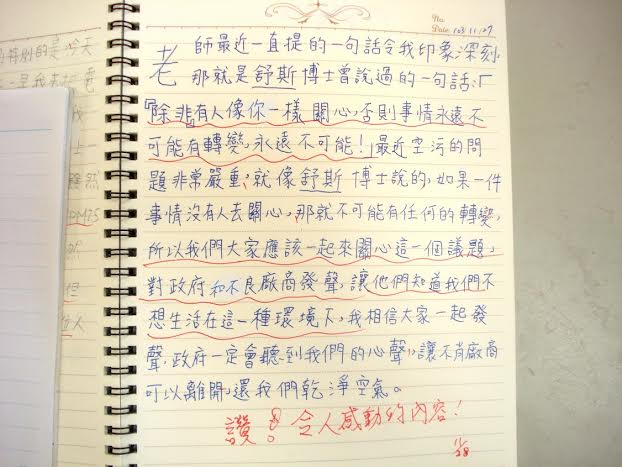 No.
Date 103.11.27
老師最近一直提的一句話令我印象深刻,
那就是舒斯博士曾說過的一句話:「
『除非有人像你一樣關心,否則事情永遠不
可能有轉變,永遠不可能!」最近空污的問
題非常嚴重,就像舒斯博士說的,如果一件
事情沒有人去關心,那就不可能有任何的轉變,
所以我們大家應該一起來關心這一個議題,
對政府和不良廠商發聲,讓他們知道我們不
想生活在這一種環境下,我相信大家一起發
聲,政府一定會聽到我們的心聲,讓不肖廠商
可以離開,還我們乾淨空氣。
讚!令人感動的內容!
11/28
的是今天
我
雖然
PM2.5
然
但
人